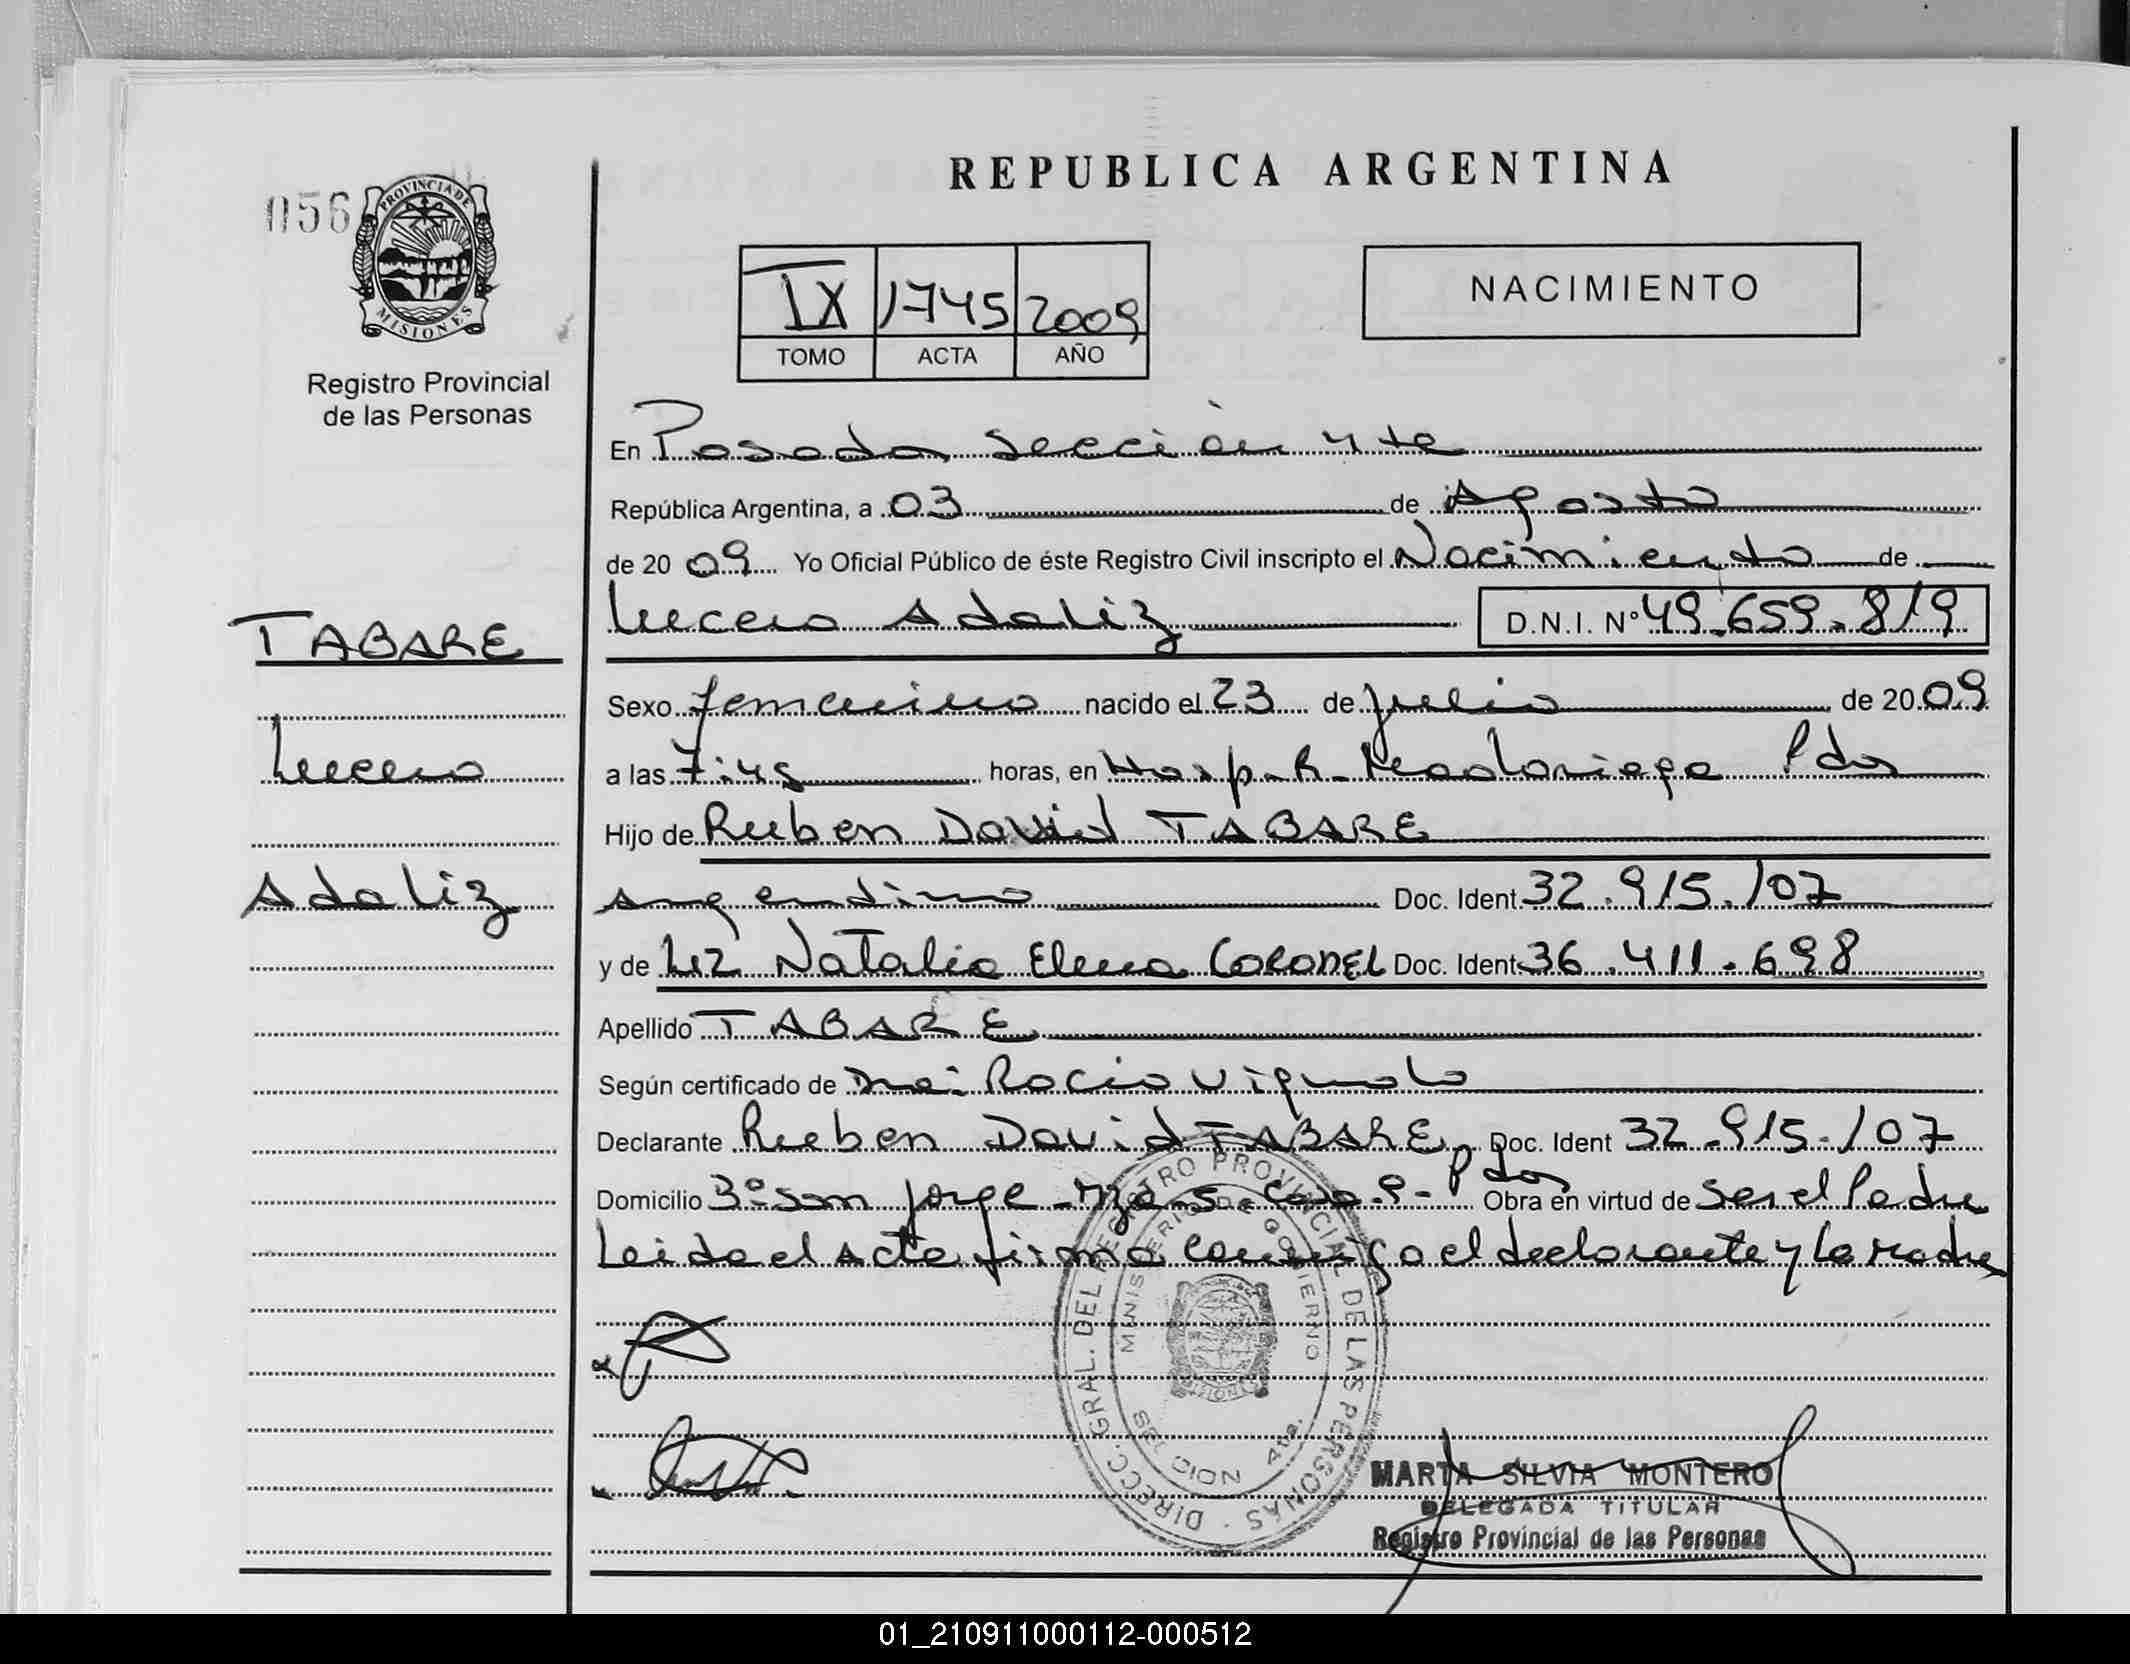 REPUBLICA ARGENTINA
056
PROVINCIA DE
MISIONES
Registro Provincial
de las Personas
IX 1745 2009
TOMO ACTA AÑO
NACIMIENTO
En Posadas sección 4ta
República Argentina, a 03 de Agosto
de 2009 Yo Oficial Público de éste Registro Civil inscripto el Nacimiento de
Lucero Adaliz D.N.I. Nº 49.659.819
TABARE
Lucero
Adaliz
Sexo femenino nacido el 23 de julio de 2009
a las 7:45 horas, en Hosp. R. Madariaga Pdas
Hijo de Ruben David TABARE
Argentino Doc. Ident 32.915.107
y de Liz Natalia Elena CORONEL Doc. Ident 36.411.698
Apellido TABARE
Según certificado de Dra: Rocio Vignolo
Declarante Ruben David TABARE Doc. Ident 32.915.107
Domicilio 3º San Jorge Mza 5 Casa 9 - Pdas Obra en virtud de ser el Padre
Leida el Acta firma conmigo el declarante y la madre
DIRECC. GRAL. DEL REGISTRO PROVINCIAL DE LAS PERSONAS
MINISTERIO DE GOBIERNO
MISIONES
SECCION 4ta.
MARTA SILVIA MONTERO
DELEGADA TITULAR
Registro Provincial de las Personas
01_210911000112-000512